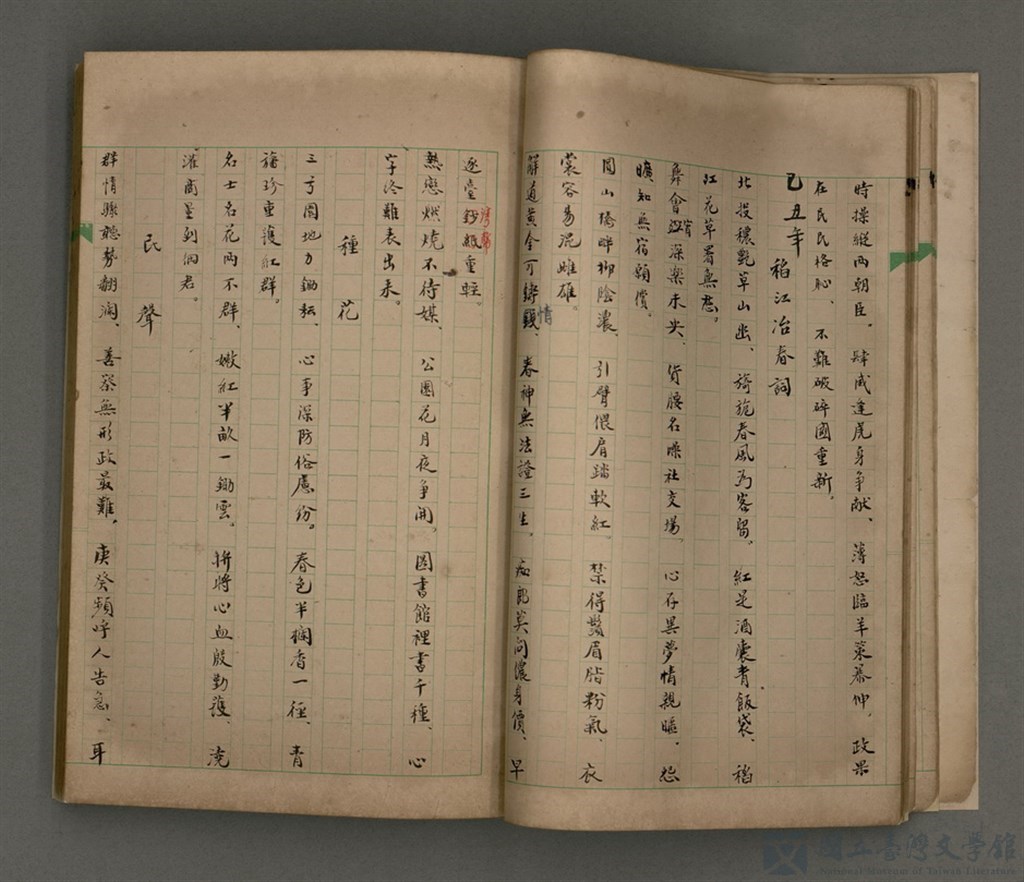 時操縱兩朝臣。肆威逢虎身爭献、薄怒臨羊策慕伸。政果
在民民格恥、不難破碎國重新。
己丑年 稻江冶春詞
北投穠艷草山幽、旖旎春風為客留。紅是酒囊青飯袋、稻
江花草署無愁。
舜會江皆深樂未央、貨腰名噪社交場。心存異夢情親暱。怨
曠知無宿願償。
圓山橋畔柳陰濃、引臂偎肩踏軟紅。禁得鬚眉脂粉氣、衣
裳容易混雌雄。
解道黃金可縛情、春神無法證三生。痴郎莫问儂身價、早
逐臺灣幣重輕。
熱戀燃燒不待媒、公園花月夜爭開。圖書館裡書千種、心
字終難表出來。
種花
三弓園地力鋤耘、心事深防俗慮紛。春色半欄香一徑、青
旛珍重護紅群。
名士名花両不群、嫩紅半畝一鋤雲。拚將心血殷勤護、澆
灌商量到個君。
民聲
群情縣聽勢翻瀾、善察無形政最難。庚癸頻呼人告急、耳
國立臺灣文學館
National Museum of Taiwan Literature